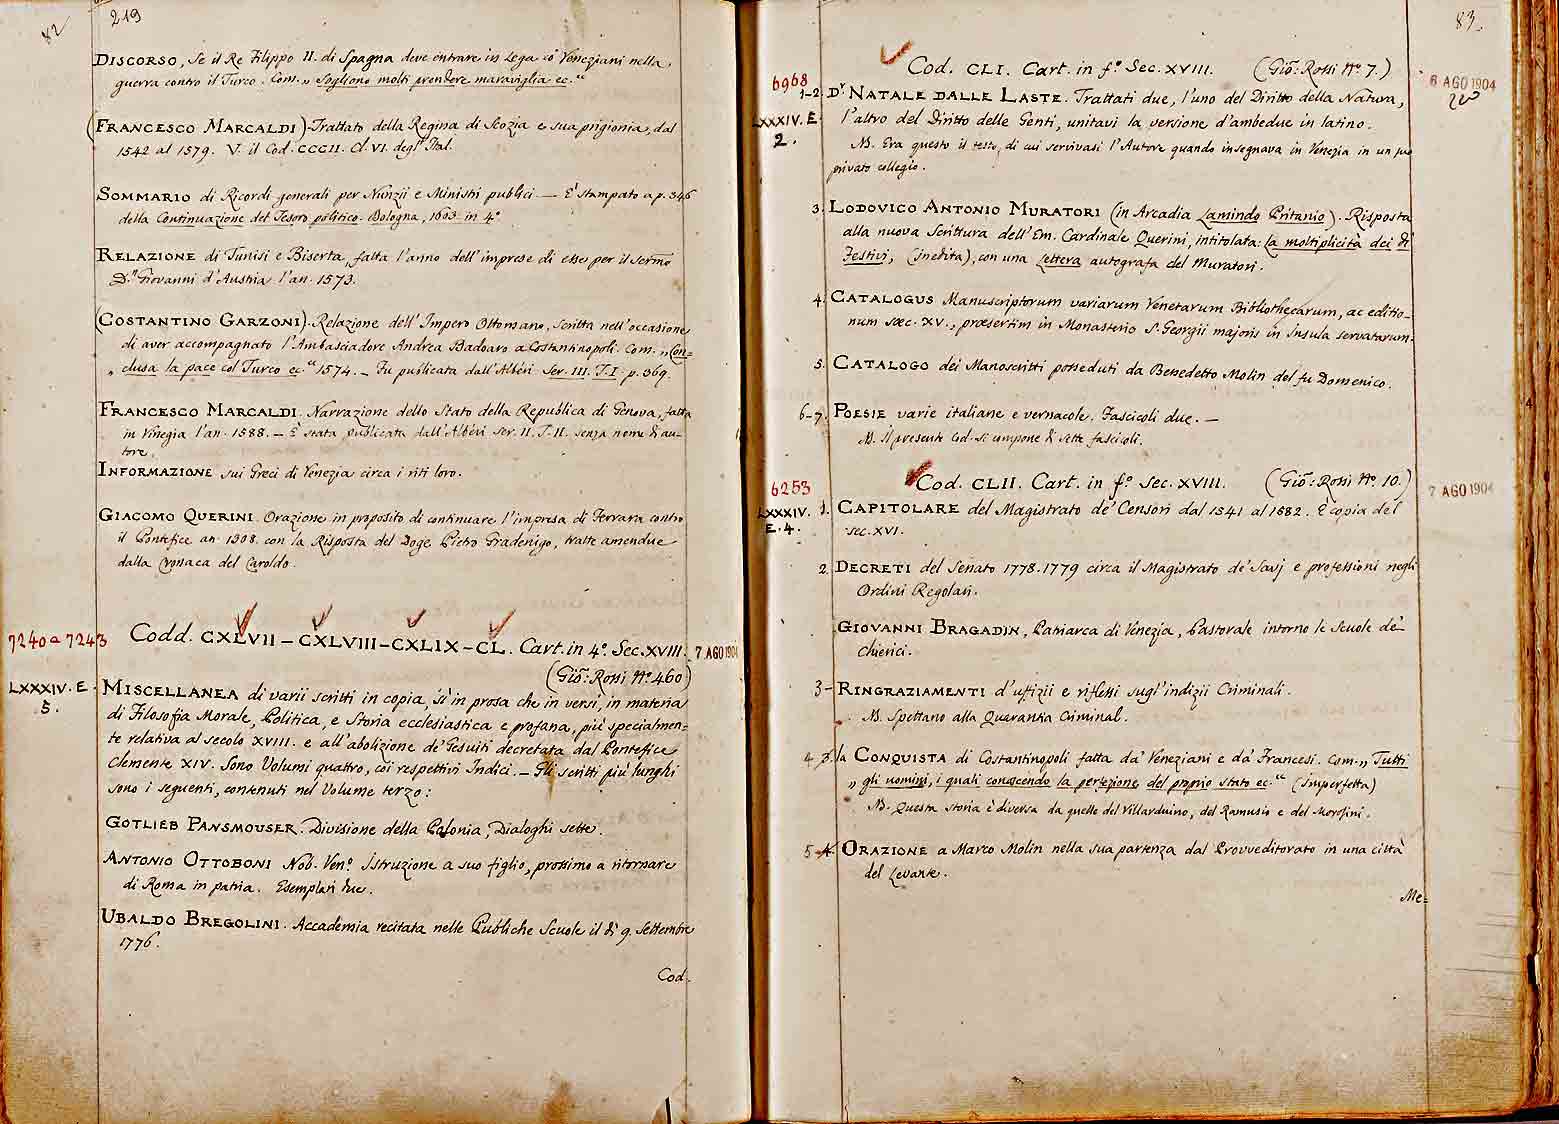 82
219
DISCORSO, Se il Re Filippo II. di Spagna deve entrare in Lega cō Veneziani nella
guerra contro il Turco. Com. „ Sogliono molti prendere maraviglia ec.“
(FRANCESCO MARCALDI). Trattato della Regina di Scozia e sua prigionia, dal
1542 al 1579. V. il Cod. CCCII. Cl. VI. degl' Ital.
SOMMARIO di Ricordi generali per Nunzii e Ministri publici. — È stampato a p. 346
della Continuazione del Tesoro politico. Bologna, 1603. in 4.°
RELAZIONE di Tunisi e Biserta, fatta l'anno dell'imprese di esse per il sermo
D.n Giovanni d'Austria l'an. 1573.
(COSTANTINO GARZONI). Relazione dell'Impero Ottomano, scritta nell'occasione
di aver accompagnato l'Ambasciadore Andrea Badoaro a Costantinopoli. Com. „ Con=
„ clusa la pace col Turco ec.“ 1574. — Fu publicata dall'Albéri Ser. III. T. I. p. 369.
FRANCESCO MARCALDI. Narrazione dello Stato della Republica di Genova, fatta
in Vinegia l'an. 1588. — È stata publicata dall'Albéri Ser. II. T. II. senza nome di au-
tore.
INFORMAZIONE sui Greci di Venezia circa i riti loro.
GIACOMO QUERINI. Orazione in proposito di continuare l'impresa di Ferrara contro
il Pontefice an. 1308. con la Risposta del Doge Pietro Gradenigo, tratte amendue
dalla Cronaca del Caroldo.
7240 a 7243
Codd. CXLVII – CXLVIII – CXLIX – CL. Cart. in 4.° Sec. XVIII.
7 AGO 1904
(Giō: Rossi N.° 460)
LXXXIV. E.
5.
MISCELLANEA di varii scritti in copia, sì in prosa che in versi, in materia
di Filosofia Morale, Politica, e Storia ecclesiastica e profana, più specialmen-
te relativa al secolo XVIII. e all'abolizione de' Gesuiti decretata dal Pontefice
Clemente XIV. Sono Volumi quattro, coi respettivi Indici. — Gli scritti più lunghi
sono i seguenti, contenuti nel Volume terzo:
GOTLIEB PANSMOUSER. Divisione della Polonia, Dialoghi sette.
ANTONIO OTTOBONI Nob. Ven.° Istruzione a suo figlio, prossimo a ritornare
di Roma in patria. Esemplari due.
UBALDO BREGOLINI. Accademia recitata nelle Publiche Scuole il dì 9. Settembre
1776.
Cod.
83.
6968
Cod. CLI. Cart. in f.° Sec. XVIII. (Giō: Rossi N.° 7.)
6 AGO 1904
LXXXIV. E.
2.
1-2. D.r NATALE DALLE LASTE. Trattati due, l'uno del Diritto della Natura,
l'altro del Diritto delle Genti, unitavi la versione d'ambedue in latino.
N. Era questo il testo, di cui servivasi l'Autore quando insegnava in Venezia in un suo
privato collegio.
3. LODOVICO ANTONIO MURATORI (in Arcadia Lamindo Pritanio). Risposta
alla nuova Scrittura dell'Em. Cardinale Querini, intitolata: La moltiplicità dei dì
Festivi, (inedita), con una Lettera autografa del Muratori.
4. CATALOGUS Manuscriptorum variarum Venetarum Bibliothecarum, ac editio-
num sæc. XV., præsertim in Monasterio S. Georgii majoris in Insula servatarum.
5. CATALOGO dei Manoscritti posseduti da Benedetto Molin del fu Domenico.
6-7. POESIE varie italiane e vernacole. Fascicoli due. —
N. Il presente Cod. si compone di sette fascicoli.
6253
Cod. CLII. Cart. in f.° Sec. XVIII. (Giō: Rossi N.° 10.)
7 AGO 1904
LXXXIV.
E. 4.
1. CAPITOLARE del Magistrato de' Censori dal 1541 al 1582. È copia del
sec. XVI.
2. DECRETI del Senato 1778. 1779 circa il Magistrato de' Savj e professioni negli
Ordini Regolari.
GIOVANNI BRAGADIN, Patriarca di Venezia, Pastorale intorno le Scuole de'
Chierici.
3- RINGRAZIAMENTI d'uffizii e riflessi sugl'indizii Criminali.
N. Spettano alla Quarantia Criminal.
4 3. la CONQUISTA di Costantinopoli fatta da' Veneziani e da' Francesi. Com. „ Tutti
„ gli uomini, i quali conoscendo la perfezione del proprio stato ec.“ (imperfetta)
N. Questa storia è diversa da quelle del Villarduino, del Ramusio e del Morosini.
5 4. ORAZIONE a Marco Molin nella sua partenza dal Provveditorato in una città
del Levante.
Me=